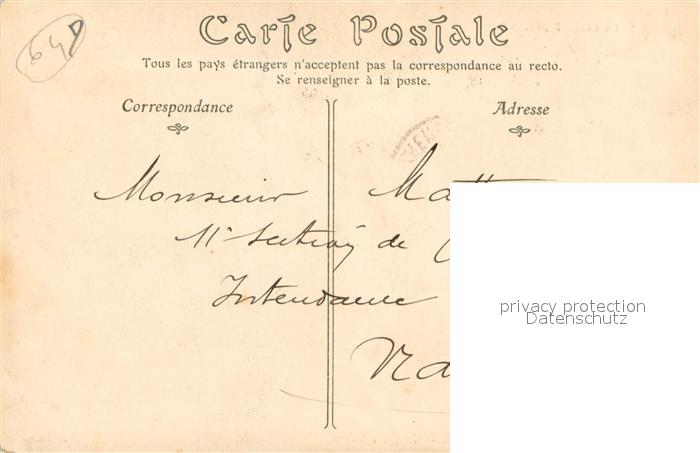 64 D
Carte Postale
Tous les pays étrangers n'acceptent pas la correspondance au recto.
Se renseigner à la poste.
Correspondance
Adresse
Monsieur Matt
11e Section de
Intendance
Na
privacy protection
Datenschutz